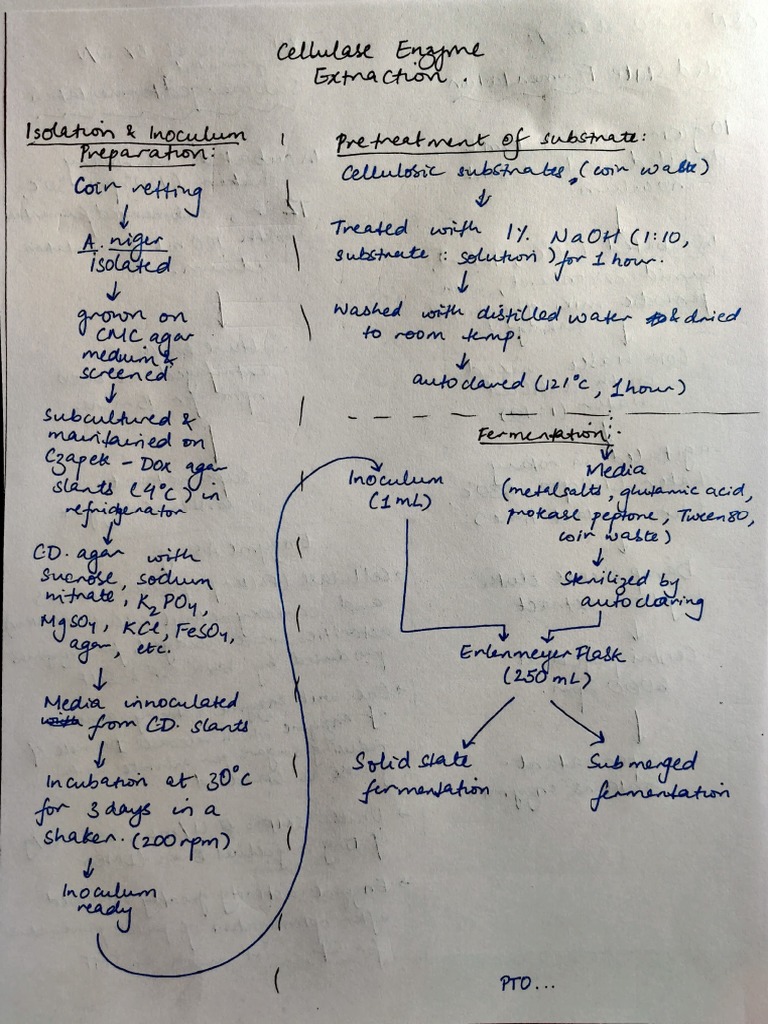 Cellulase Enzyme
Extraction.
Isolation & Inoculum
Preparation:
Coir retting
A. niger
isolated
grown on
CMC agar
medium &
screened
Subcultured &
maintained on
Czapek - Dox agar
slants (4°C) in
refrigerator
CD. agar with
sucrose, sodium
nitrate, K2PO4,
MgSO4, KCl, FeSO4,
agar, etc.
Media innoculated
from CD. slants
Incubation at 30°C
for 3 days in a
shaker. (200rpm)
Inoculum
ready
Pretreatment of substrate:
Cellulosic substrates, (coir waste)
Treated with 1% NaOH (1:10,
substrate : solution) for 1 hour.
Washed with distilled water & dried
to room temp.
autoclaved (121°C, 1hour)
Fermentation:
Inoculum
(1mL)
Media
(metal salts, glutamic acid,
protease peptone, Tween80,
coir waste)
Sterilized by
autoclaving
Erlenmeyer Flask
(250mL)
Solid state
fermentation
Submerged
fermentation
PTO...